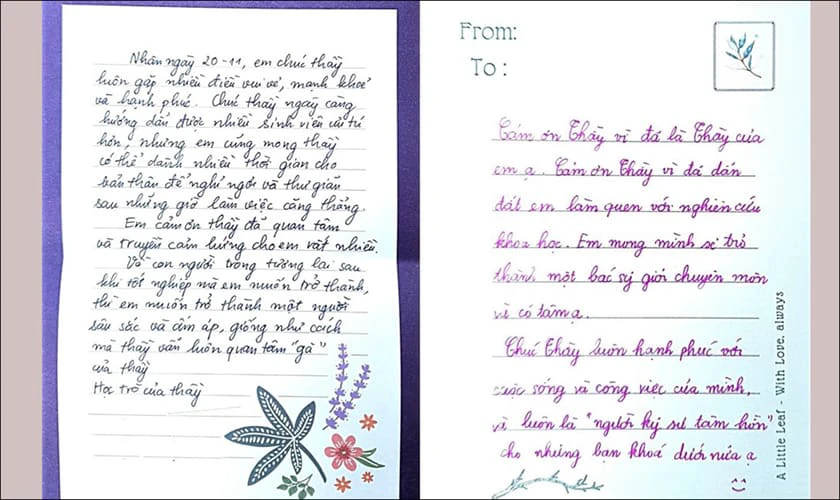 Nhân ngày 20-11, em chúc thầy
luôn gặp nhiều điều vui vẻ, mạnh khoẻ
và hạnh phúc. Chúc thầy ngày càng
hướng dẫn được nhiều sinh viên ưu tú
hơn, nhưng em cũng mong thầy
có thể dành nhiều thời gian cho
bản thân để nghỉ ngơi và thư giãn
sau những giờ làm việc căng thẳng.
Em cảm ơn thầy đã quan tâm
và truyền cảm hứng cho em rất nhiều.
Về con người trong tương lai sau
khi tốt nghiệp mà em muốn trở thành,
thì em muốn trở thành một người
sâu sắc và ấm áp, giống như cách
mà thầy vẫn luôn quan tâm "gà"
của thầy
Học trò của thầy
From:
To :
Cảm ơn Thầy vì đã là Thầy của
em ạ. Cảm ơn Thầy vì đã dẫn
dắt em làm quen với nghiên cứu
khoa học. Em mong mình sẽ trở
thành một bác sỹ giỏi chuyên môn
và có tâm ạ.
Chúc Thầy luôn hạnh phúc với
cuộc sống và công việc của mình,
và luôn là "người kỹ sư tâm hồn"
cho những bạn khoá dưới nữa ạ
A Little Leaf - With Love, always